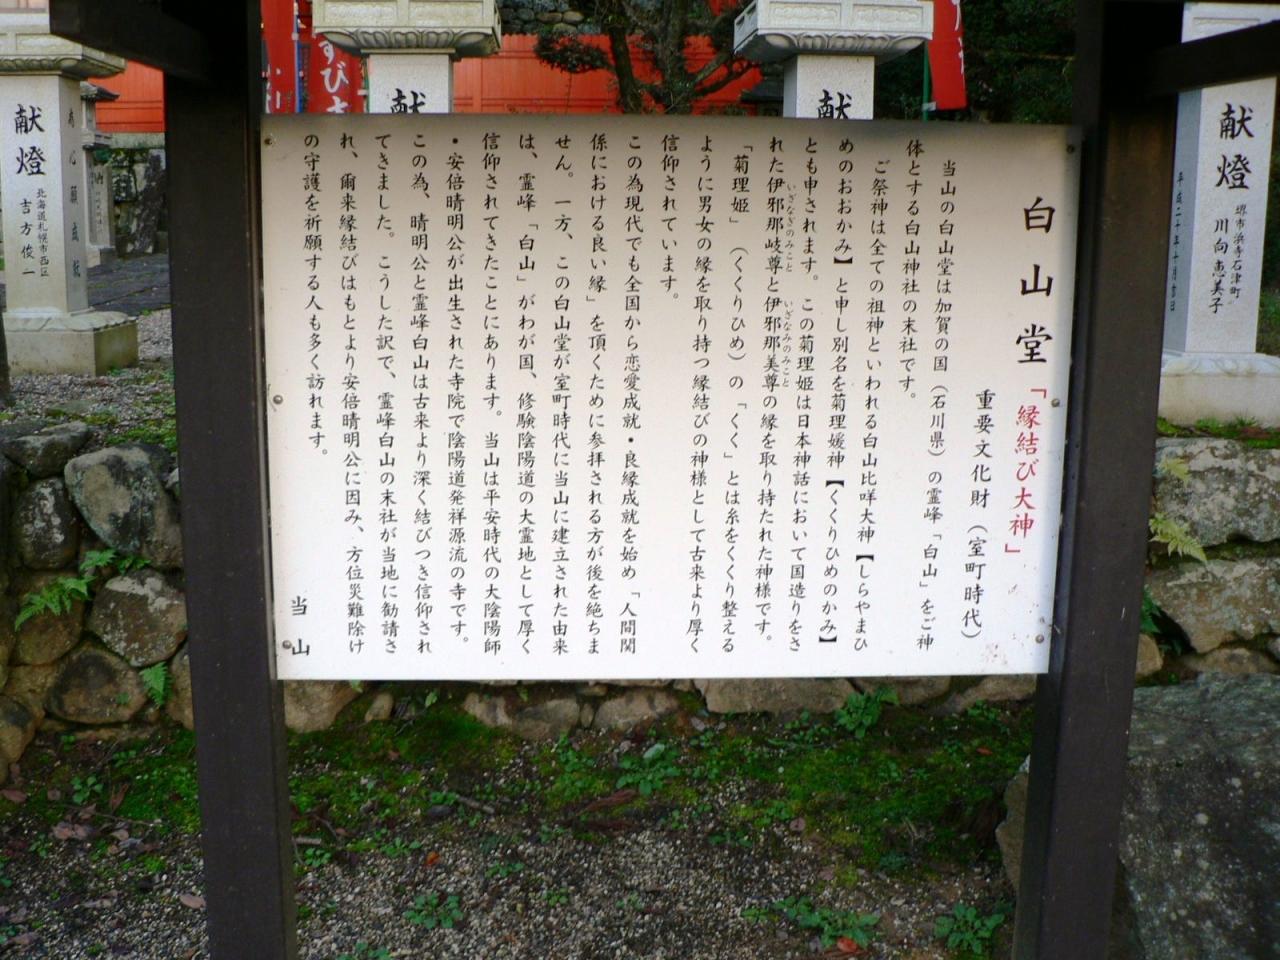 白山堂「縁結び大神」
重要文化財（室町時代）
当山の白山堂は加賀の国（石川県）の霊峰「白山」をご神
体とする白山神社の末社です。
ご祭神は全ての祖神といわれる白山比咩大神【しらやまひ
めのおおかみ】と申し別名を菊理媛神【くくりひめのかみ】
とも申されます。この菊理姫は日本神話において国造りをさ
れた伊邪那岐尊と伊邪那美尊の縁を取り持たれた神様です。
いざなぎのみこと
いざなみのみこと
「菊理姫」（くくりひめ）の「くく」とは糸をくくり整える
ように男女の縁を取り持つ縁結びの神様として古来より厚く
信仰されています。
この為現代でも全国から恋愛成就・良縁成就を始め「人間関
係における良い縁」を頂くために参拝される方が後を絶ちま
せん。一方、この白山堂が室町時代に当山に建立された由来
は、霊峰「白山」がわが国、修験陰陽道の大霊地として厚く
信仰されてきたことにあります。当山は平安時代の大陰陽師
・安倍晴明公が出生された寺院で陰陽道発祥源流の寺です。
この為、晴明公と霊峰白山は古来より深く結びつき信仰され
てきました。こうした訳で、霊峰白山の末社が当地に勧請さ
れ、爾来縁結びはもとより安倍晴明公に因み、方位災難除け
の守護を祈願する人も多く訪れます。
当山
献燈
堺市浜寺石津町
川向恵美子
献
献
すび大
献燈
北海道札幌市西区
吉方俊一